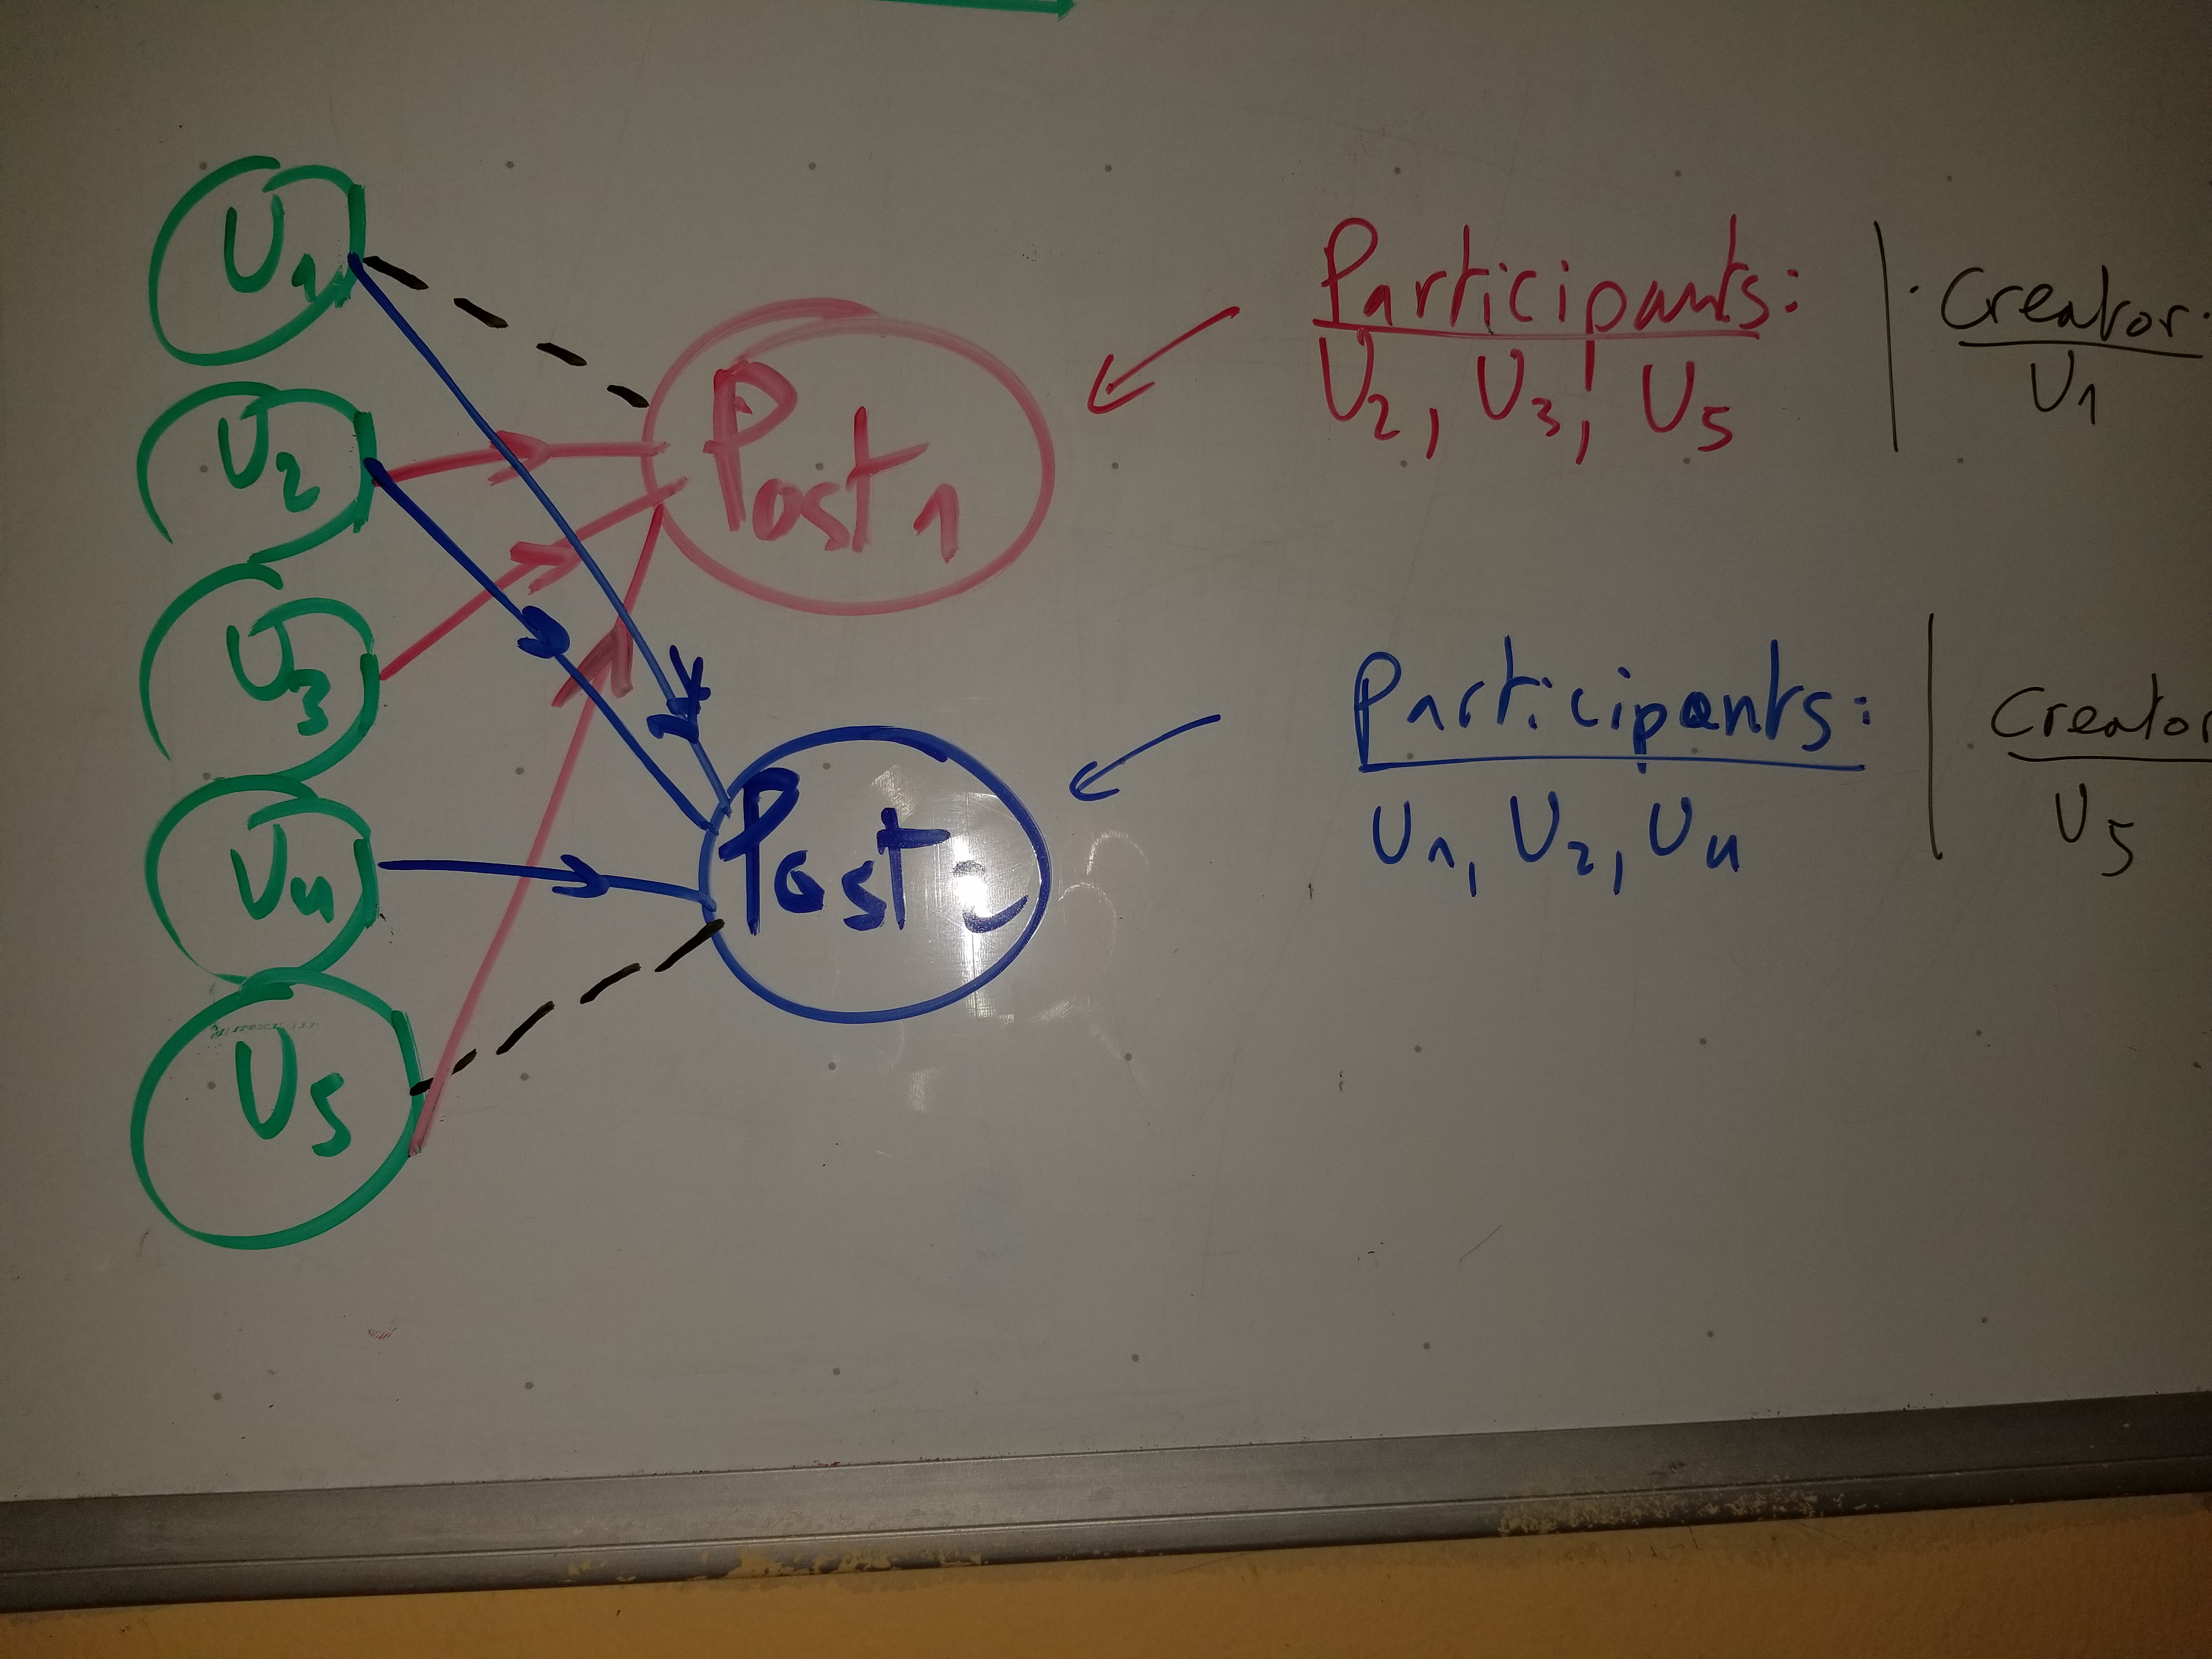 U1
U2
U3
U4
U5
Post 1
Post 2
Participants:
U2, U3, U5
Creator:
U1
Participants:
U1, U2, U4
Creator
U5